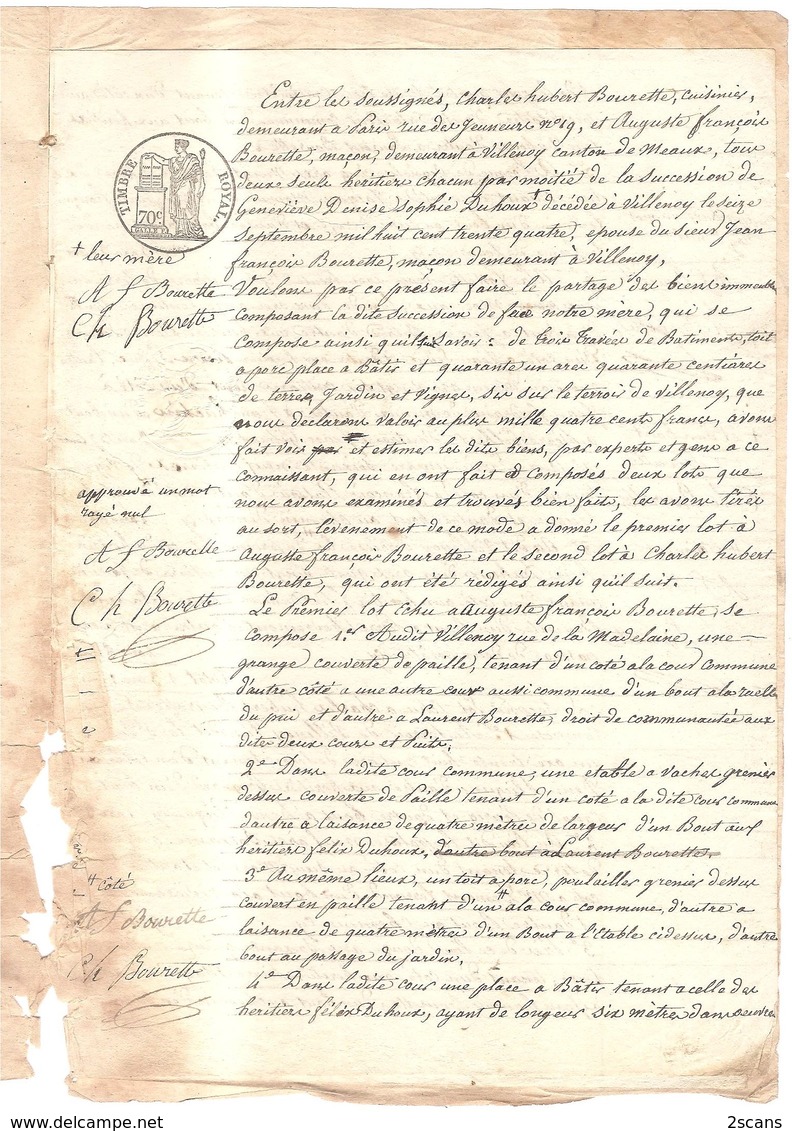 Entre les soussignés, Charles hubert Bourette, cuisinier,
demeurant a Paris rue des Jeuneurs n° 19, et Auguste françois
Bourette, maçon, demeurant à Villenoy canton de Meaux, tous
deux seuls heritiers chacun par moitié de la succession de
Geneviève Denise Sophie Duhoux + décédée à Villenoy le seize
septembre mil huit cent trente quatre, epouse du sieur Jean
françois Bourette, maçon demeurant à Villenoy,
Voulons par ce présent faire le partage des biens immeubles
composant la dite succession de feue notre mère, qui se
compose ainsi qu'il suit savoir : de Trois Travées de Batiments, toit
a porc place a Bâtir et quarante un ares quarante centiares
de terres, Jardin et Vignes, sis sur le terroir de Villenoy, que
nous declarons valoir au plus mille quatre cents francs, avons
fait voir par et estimer les dits biens, par experts et gens a ce
connaissant, qui en ont fait et composés deux lots que
nous avons examinés et trouvés bien faits, les avons tirés
au sort, l'évenement de ce mode a donné le premier lot à
Auguste françois Bourette et le second lot à Charles hubert
Bourette, qui ont été rédigés ainsi qu'il suit.
Le Premier lot echu a Auguste françois Bourette, se
compose 1er Audit Villenoy rue de la Madelaine, une
grange couverte de paille, tenant d'un coté a la cour commune
d'autre côté a une autre cour aussi commune d'un bout a la ruelle
du pui et d'autre a Laurent Bourette, droit de communautée aux
dites deux cours et Puits.
2e Dans ladite cour commune, une etable a vaches grenier
dessus couverte de Paille tenant d'un coté a la dite cour commune
d'autre à laisance de quatre mètres de largeur d'un Bout aux
heritiers felix Duhoux, d'autre bout à Laurent Bourette.
3e Au même lieux, un toit a porc, poulailler grenier dessus
couvert en paille tenant d'un # a la cour commune, d'autre a
laisance de quatre mètres d'un Bout a l'Etable cidessus, d'autre
bout au passage du jardin,
4e Dans ladite cour une place a Bâtir tenant a celle des
heritiers félix Duhoux, ayant de longeur six mètres dans oeuvre
TIMBRE ROYAL
70c
+ leur mère
A f Bourette
Ch Bourette
approuvé un mot
rayé nul
A f Bourette
Ch Bourette
# côté
A f Bourette
Ch Bourette
2scans